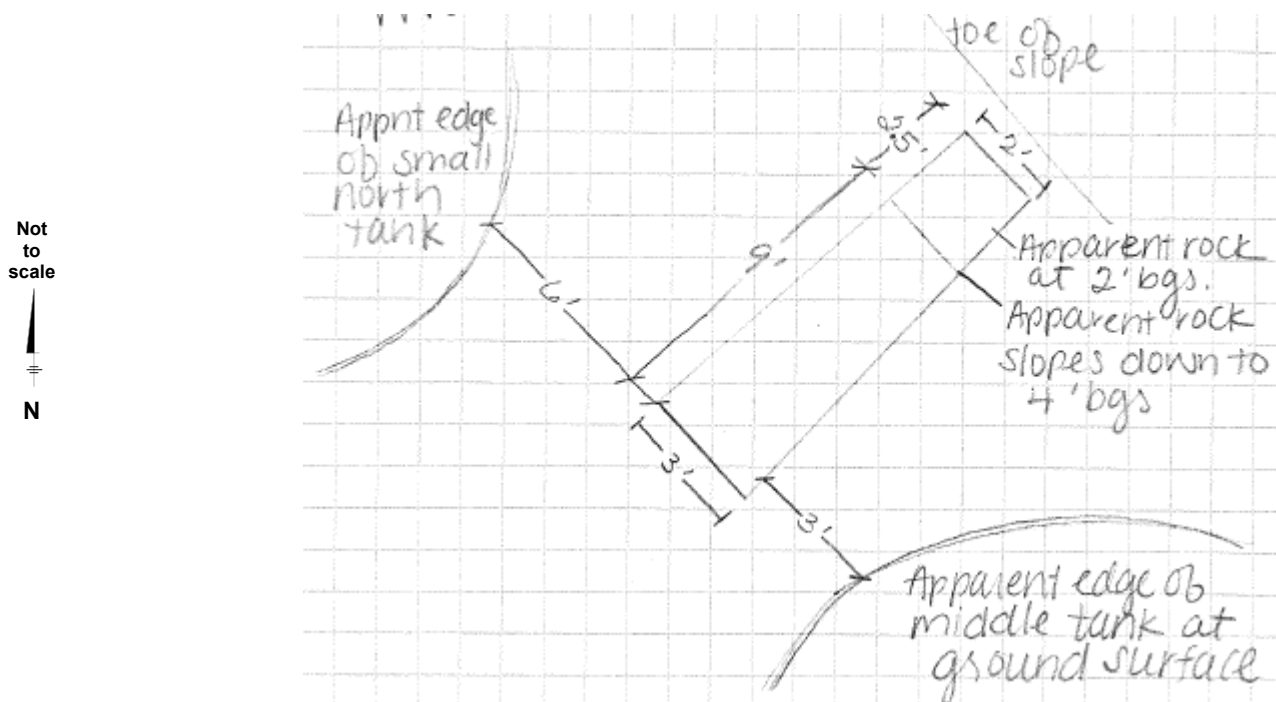 toe of
slope
Appnt edge
of small
north
tank
2.5'
2'
9'
6'
3'
3'
Apparent rock
at 2' bgs.
Apparent rock
slopes down to
4' bgs
Apparent edge of
middle tank at
ground surface
Not
to
scale
N